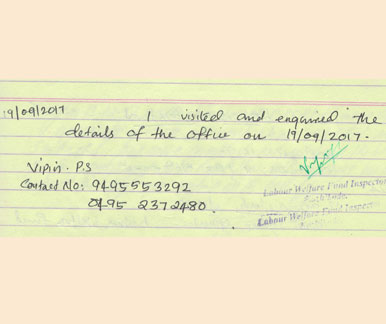 19/09/2017 I visited and enquired the
details of the office on 19/09/2017.
Vipin. P.S
Contact No: 9495553292
0495 2372480.
Labour Welfare Fund Inspector
Labour Welfare Fund Inspector